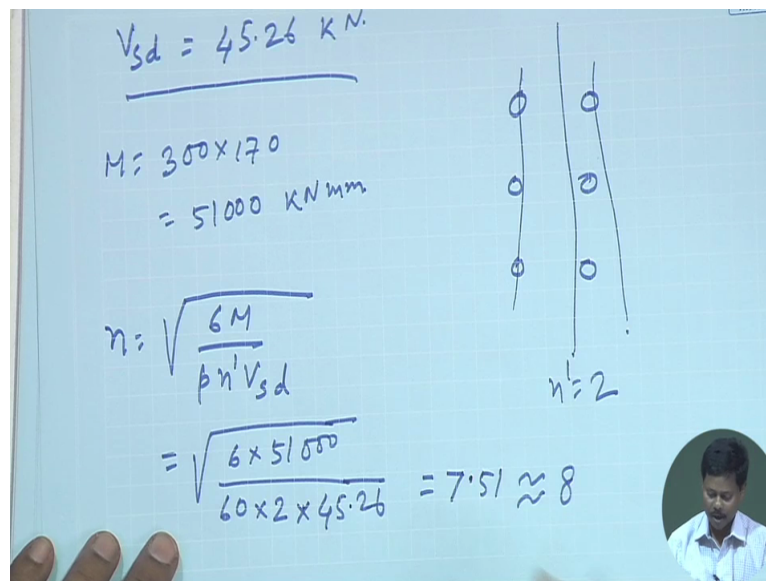 Vsd = 45.26 KN.
M = 300×170
= 51000 KNmm
n = √(6M / pn'Vsd)
n' = 2
= √(6×51000 / 60×2×45.26) = 7.51 ≈ 8